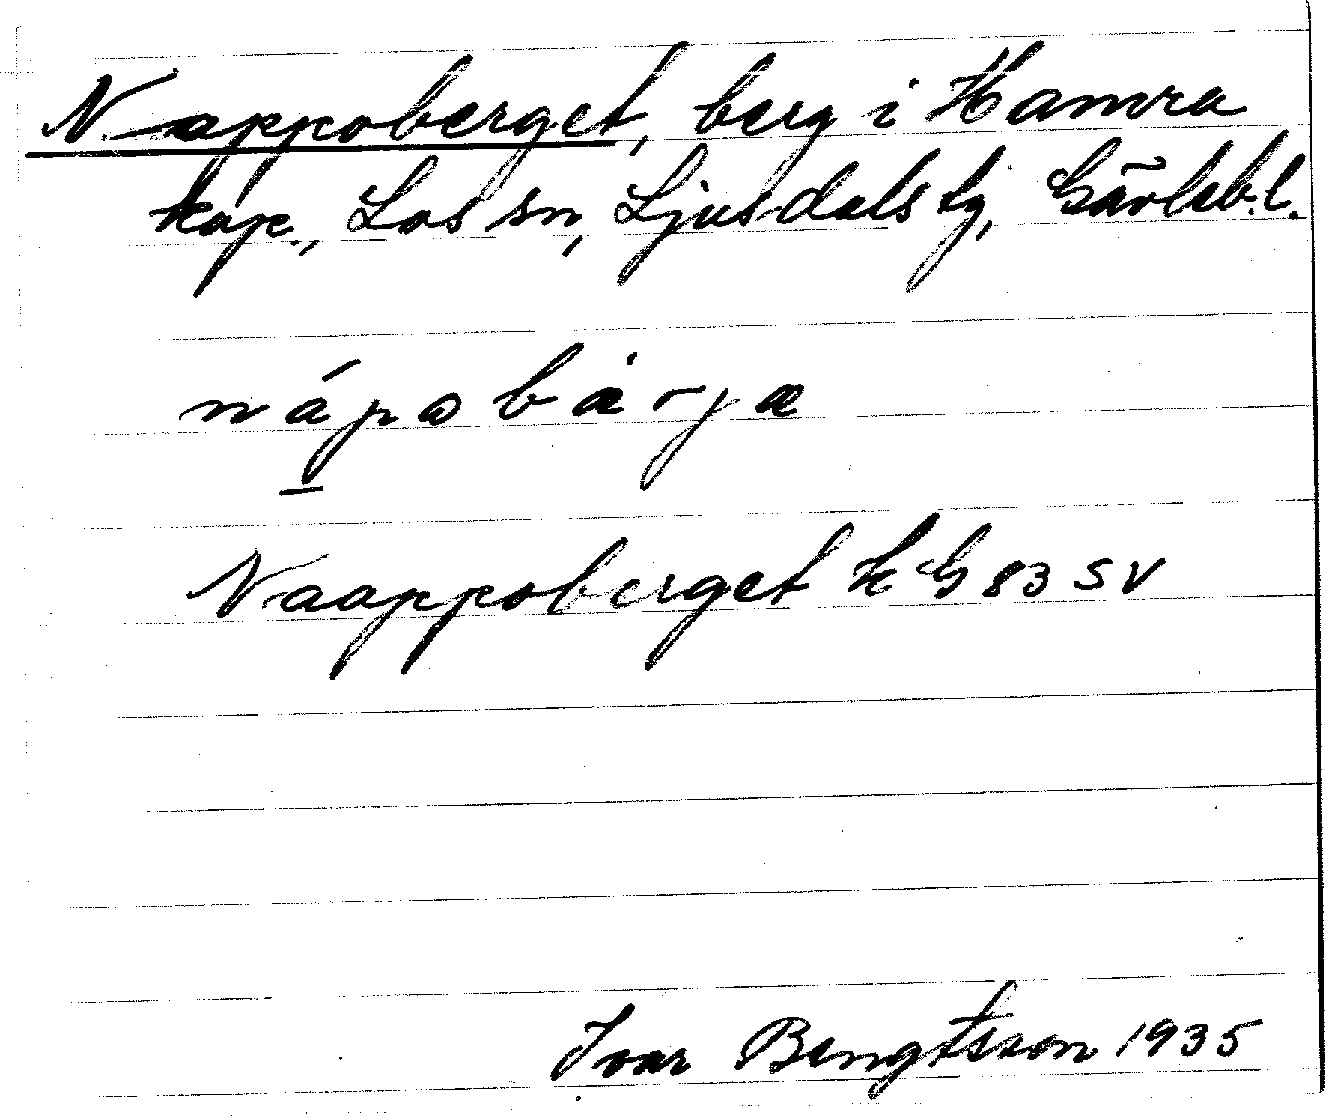 Nappoberget, berg i Hamra
kap., Los sn, Ljusdals tg, Gävleb.l.
nápobȧrjæ
Naappoberget KG 83 SV
Ivar Bengtsson 1935